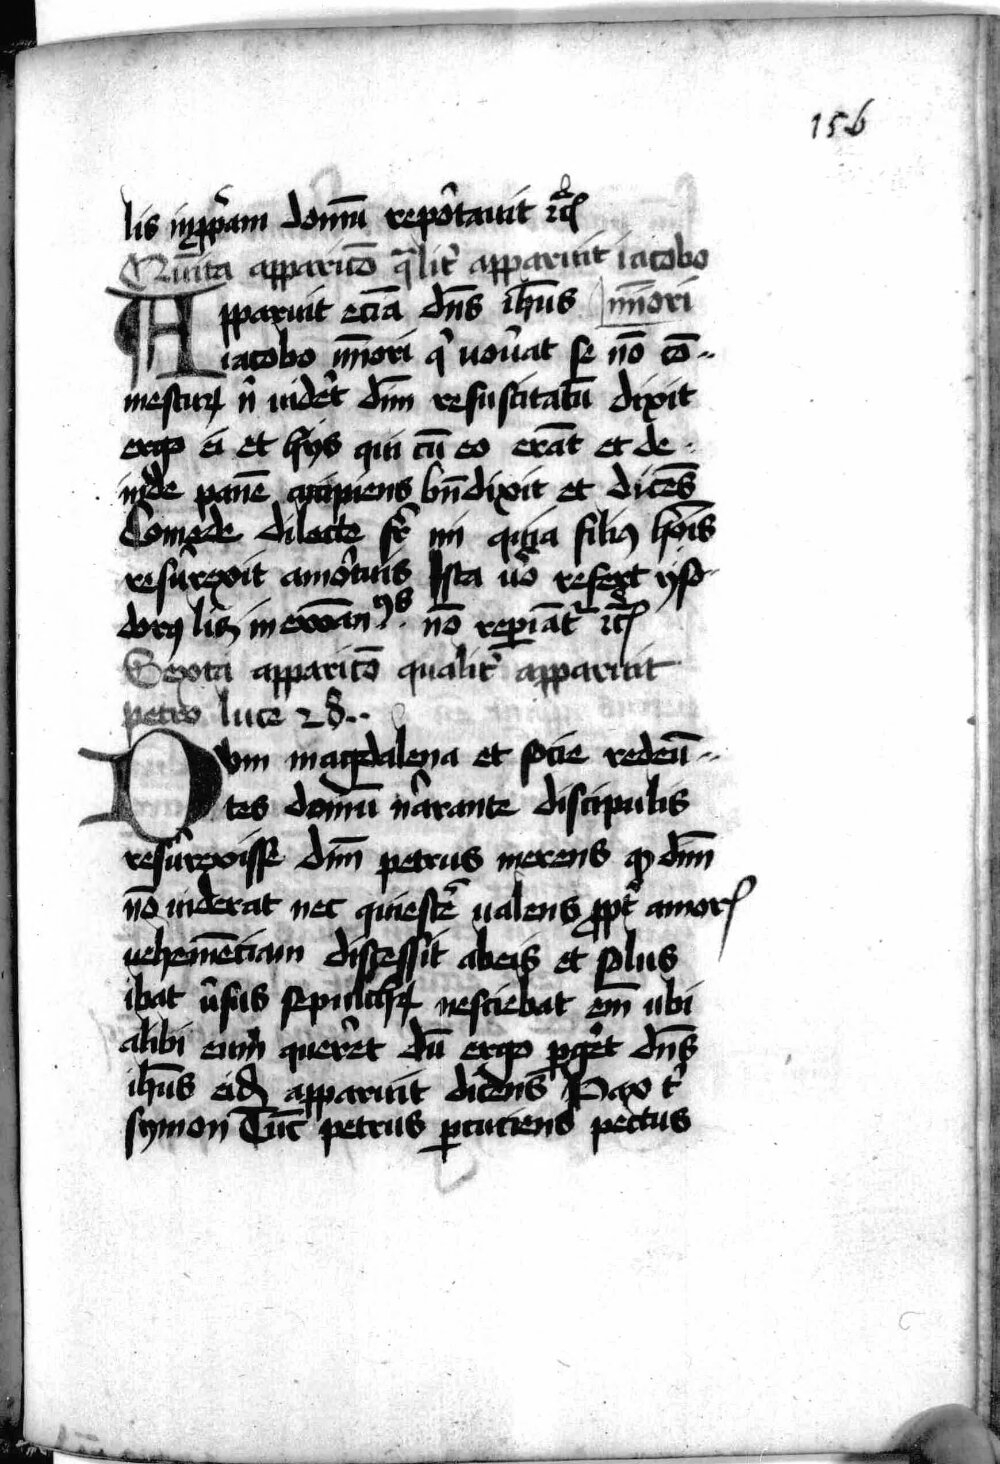 156
lis in ꝓp̄am domū repōtauit ꝛc̄
Qūita apparicō qͣlit̉ apparuit iacobo
Apparuit ecīa dn̄s ih̄us mīori
iacobo mīori qͥ uou̓at se nō cō
mesturꝝ n̄ uidēt dn̄m resuscitatū dixit
ergo ei et hijs qui cū eo erāt et de
inde panē accipiens bn̄dixit et dicēs
Comede dilecte fr̄ mi quia filiꝰ hoīs
resūrexit amōtuis Ista ūo refert yſo
dorꝰ lꝫ in ewan nō repiāt̉ ꝛc̄
Sexta apparicō qualit̉ apparuit
petro luce 2d̄
Dum magdalena et socie redeū
tes domū nārante discipulis
resūrexisse dn̄m petrus merens ꝙ dn̄m
nō uiderat nec quiescē̉ ualens ꝓpt̉ amorꝭ
uehemēciam discessit abeis et solus
ibat ūsus sepulchrꝝ nesciebat em̄ ubi
alibi eum quer̉et dū ergo ꝑḡet dn̄s
ih̄us eidꝫ apparuit dicens Pax t̉
symon Tūc petrus ꝑcuciens pectus